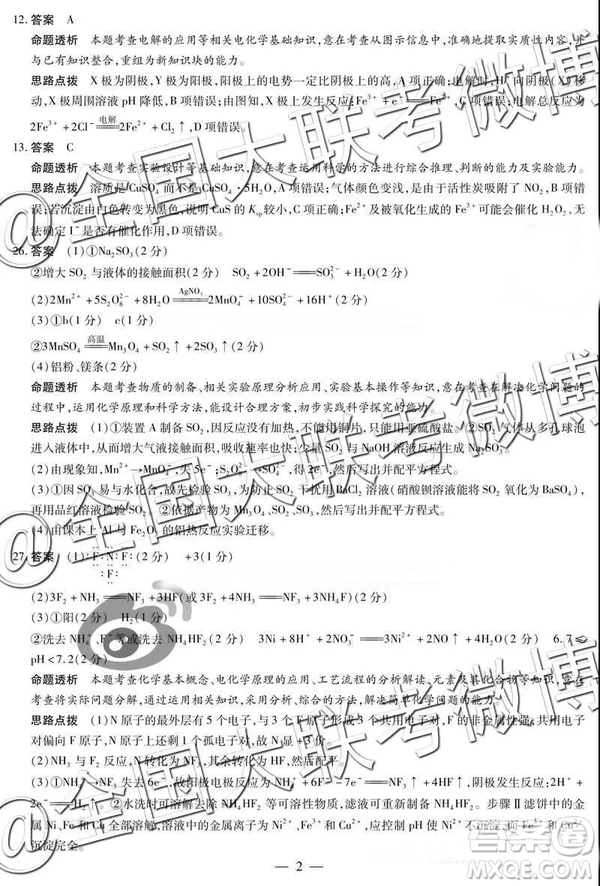 12. 答案 A
命题透析 本题考查电解的应用等相关电化学基础知识,意在考查从图示信息中,或提取实质性内容,并
与已有知识整合,重组为新知识块的能力。
思路点拨 X极为阴极,Y极为阳极,阳极上的电势一定比阴极上高,A项正确;电解时,H⁺向阴极(X)移
动,X极周围溶液pH降低,B项错误;由图知,X极上发生反应:Fe³⁺+e⁻ Fe²⁺,C项错误;电解总反应为
2Fe³⁺+2Cl⁻ 电解 2Fe²⁺+Cl₂↑,D项错误。
13. 答案 C
命题透析 本题考查实验设计等基础知识,意在考查运用科学的方法进行综合推理、判断的能力及实验能力。
思路点拨 溶质是CuSO₄而不是CuSO₄·5H₂O,A项错误;气体颜色变浅,说明活性炭吸附了NO₂,B项错
误;若沉淀由白色转变为黑色,说明CuS的Ksp较小,C项正确;Fe²⁺及被氧化生成的Fe³⁺可能会催化H₂O₂,无
法确定I⁻是否有催化作用,D项错误。
26. 答案 (1)①Na₂SO₃(2分)
②增大SO₂与液体的接触面积(2分) SO₂+2OH⁻══SO₃²⁻+H₂O(2分)
(2)2Mn²⁺+5S₂O₈²⁻+8H₂O AgNO₃ 2MnO₄⁻+10SO₄²⁻+16H⁺(2分)
(3)①b(1分) c(1分)
②3MnSO₄ 高温 Mn₃O₄+SO₂↑+2SO₃↑(2分)
(4)铝粉、镁条(2分)
命题透析 本题考查物质的制备、相关实验原理分析应用、实验基本操作等知识,意在考查在解决化学问题的
过程中,运用化学原理和科学方法,能设计合理方案,初步实践科学探究的能力。
思路点拨 (1)①装置A制备SO₂,因反应没有加热,不能用铜片,只能用亚硫酸盐。②气体从多孔球泡
进入液体中,从而增大气液接触面积,吸收速率也快;少量SO₂与NaOH溶液反应生成Na₂SO₃。
(2)由现象知,Mn²⁺→MnO₄⁻,失5e⁻;S₂O₈²⁻→SO₄²⁻,得2e⁻,然后写出并配平方程式。
(3)①因SO₃易与水化合,故先检验,为防止SO₂干扰用BaCl₂溶液(硝酸钡溶液能将SO₂氧化为BaSO₄),
再用品红溶液检验SO₂。②依据产物为Mn₃O₄、SO₂、SO₃,然后写出并配平方程式。
(4)由课本上Al与Fe₂O₃的铝热反应实验迁移。
27. 答案 (1) F N F F (2分) +3(1分)
(2)3F₂+NH₃══NF₃+3HF(或3F₂+4NH₃══NF₃+3NH₄F)(2分)
(3)①阳(2分) H₂(1分)
②洗去NH₄⁺、F⁻等或洗去NH₄HF₂(2分) 3Ni+8H⁺+2NO₃⁻══3Ni²⁺+2NO↑+4H₂O(2分) 6.7≤
pH<7.2(2分)
命题透析 本题考查化学基本概念、电化学原理的应用、工艺流程的分析解读、元素及其化合物等知识,意在
考查将实际问题分解,通过运用相关知识,采用分析、综合的方法,解决简单化学问题的能力。
思路点拨 (1)N原子的最外层有5个电子,与3个F原子形成3个共用电子对,F的非金属性强,共用电子
对偏向F原子,N原子上还剩1个孤电子对,故N显+3价。
(2)NH₃与F₂反应,N转化为NF₃,其余转化为HF,然后写出并配平方程式。
(3)①NH₄⁺→NF₃失去6e⁻,故阳极电极反应为NH₄⁺+3F⁻-6e⁻══NF₃+4H⁺,阴极发生反应:2H⁺+
2e⁻══H₂↑。②水洗时可溶解去NH₄HF₂等可溶性物质,滤液可重新制备NH₄HF₂。步骤Ⅱ滤饼中的金
属Ni、Fe和Cu全部溶解,溶液中的金属离子为Ni²⁺、Fe³⁺和Cu²⁺,应控制pH使Ni²⁺不沉淀,而Fe³⁺和Cu²⁺
沉淀完全。
— 2 —
@全国大联考微博
@全国大联考微博
@全国大联考微博